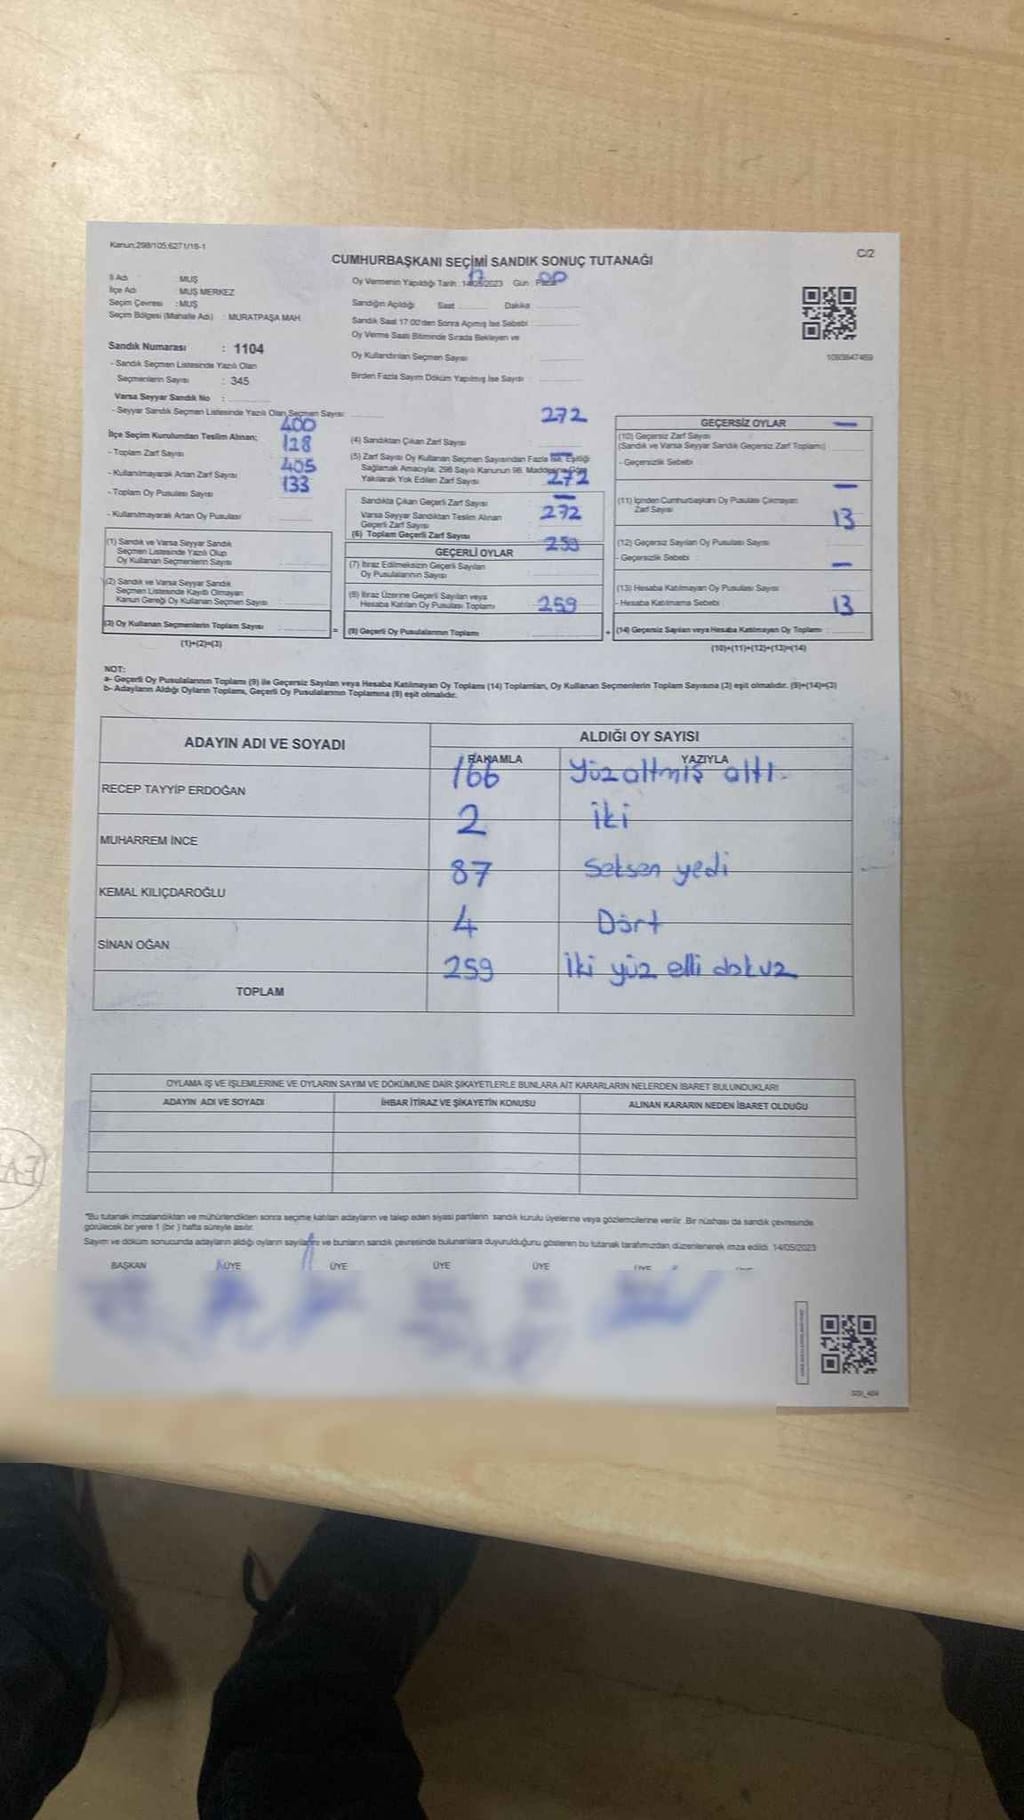 Kanun:298/105;6271/16-1
C/2
CUMHURBAŞKANI SEÇİMİ SANDIK SONUÇ TUTANAĞI
İl Adı : MUŞ
İlçe Adı : MUŞ MERKEZ
Seçim Çevresi : MUŞ
Seçim Bölgesi (Mahalle Adı) : MURATPAŞA MAH.
Sandık Numarası : 1104
- Sandık Seçmen Listesinde Yazılı Olan
Seçmenlerin Sayısı : 345
Varsa Seyyar Sandık No :
- Seyyar Sandık Seçmen Listesinde Yazılı Olan Seçmen Sayısı:
Oy Vermenin Yapıldığı Tarih : 14/05/2023 Gün : Pazar
Sandığın Açıldığı Saat Dakika
Sandık Saat 17:00'den Sonra Açılmış İse Sebebi
Oy Verme Saati Bitiminde Sırada Bekleyen ve
Oy Kullandırılan Seçmen Sayısı
Birden Fazla Sayım Döküm Yapılmış İse Sayısı
400
İlçe Seçim Kurulundan Teslim Alınan;
128
- Toplam Zarf Sayısı
405
- Kullanılmayarak Artan Zarf Sayısı
133
- Toplam Oy Pusulası Sayısı
- Kullanılmayarak Artan Oy Pusulası
(1) Sandık ve Varsa Seyyar Sandık
Seçmen Listesinde Yazılı Olup
Oy Kullanan Seçmenlerin Sayısı
(2) Sandık ve Varsa Seyyar Sandık
Seçmen Listesinde Kayıtlı Olmayan
Kanun Gereği Oy Kullanan Seçmen Sayısı
(3) Oy Kullanan Seçmenlerin Toplam Sayısı
(1)+(2)=(3)
272
(4) Sandıktan Çıkan Zarf Sayısı
(5) Zarf Sayısı Oy Kullanan Seçmen Sayısından Fazla İse, Eşitliği
Sağlamak Amacıyla, 298 Sayılı Kanunun 98. Maddesine Göre
Yakılarak Yok Edilen Zarf Sayısı
272
Sandıkta Çıkan Geçerli Zarf Sayısı
Varsa Seyyar Sandıktan Teslim Alınan
Geçerli Zarf Sayısı
272
(6) Toplam Geçerli Zarf Sayısı
259
GEÇERLİ OYLAR
(7) İtiraz Edilmeksizin Geçerli Sayılan
Oy Pusulalarının Sayısı
(8) İtiraz Üzerine Geçerli Sayılan veya
Hesaba Katılan Oy Pusulası Toplamı
259
= (9) Geçerli Oy Pusulalarının Toplamı
GEÇERSİZ OYLAR
(10) Geçersiz Zarf Sayısı
(Sandık ve Varsa Seyyar Sandık Geçersiz Zarf Toplamı)
- Geçersizlik Sebebi
(11) İçinden Cumhurbaşkanı Oy Pusulası Çıkmayan
Zarf Sayısı
13
(12) Geçersiz Sayılan Oy Pusulası Sayısı
- Geçersizlik Sebebi
(13) Hesaba Katılmayan Oy Pusulası Sayısı
- Hesaba Katılmama Sebebi
13
+ (14) Geçersiz Sayılan veya Hesaba Katılmayan Oy Toplamı
(10)+(11)+(12)+(13)=(14)
NOT:
a- Geçerli Oy Pusulalarının Toplamı (9) ile Geçersiz Sayılan veya Hesaba Katılmayan Oy Toplamı (14) Toplamları, Oy Kullanan Seçmenlerin Toplam Sayısına (3) eşit olmalıdır. (9)+(14)=(3)
b- Adayların Aldığı Oyların Toplamı, Geçerli Oy Pusulalarının Toplamına (9) eşit olmalıdır.
ADAYIN ADI VE SOYADI
ALDIĞI OY SAYISI
RAKAMLA YAZIYLA
RECEP TAYYİP ERDOĞAN 166 Yüz altmış altı
MUHARREM İNCE 2 İki
KEMAL KILIÇDAROĞLU 87 Seksen yedi
SİNAN OĞAN 4 Dört
TOPLAM 259 İki yüz elli dokuz
OYLAMA İŞ VE İŞLEMLERİNE VE OYLARIN SAYIM VE DÖKÜMÜNE DAİR ŞİKAYETLERLE BUNLARA AİT KARARLARIN NELERDEN İBARET BULUNDUKLARI
ADAYIN ADI VE SOYADI İHBAR İTİRAZ VE ŞİKAYETİN KONUSU ALINAN KARARIN NEDEN İBARET OLDUĞU
*Bu tutanak imzalandıktan ve mühürlendikten sonra seçime katılan adayların ve talep eden siyasi partilerin sandık kurulu üyelerine veya gözlemcilerine verilir. Bir nüshası da sandık çevresinde
görülecek bir yere 1 (bir) hafta süreyle asılır.
Sayım ve döküm sonucunda adayların aldığı oyların sayılarını ve bunların sandık çevresinde bulunanlara duyurulduğunu gösteren bu tutanak tarafımızdan düzenlenerek imza edildi. 14/05/2023
BAŞKAN ÜYE ÜYE ÜYE ÜYE